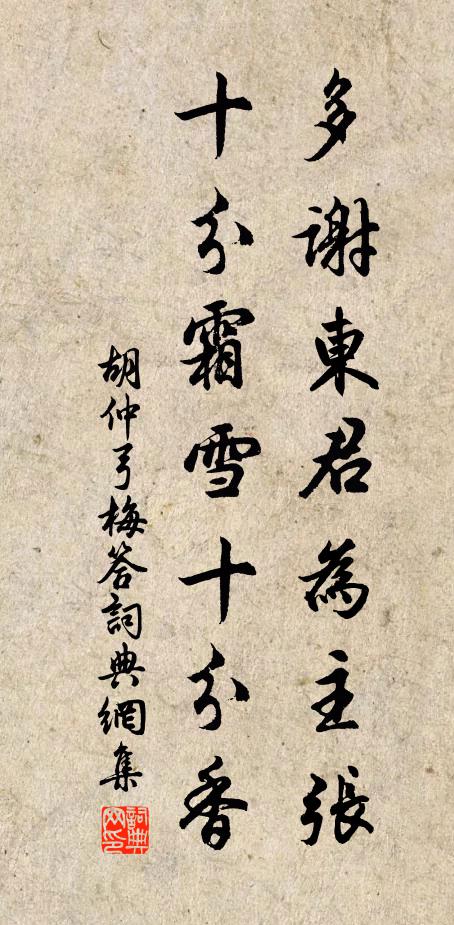 多謝東君為主張
十分霜雪十分香
胡仲弓梅答詞典網集
詞典網印